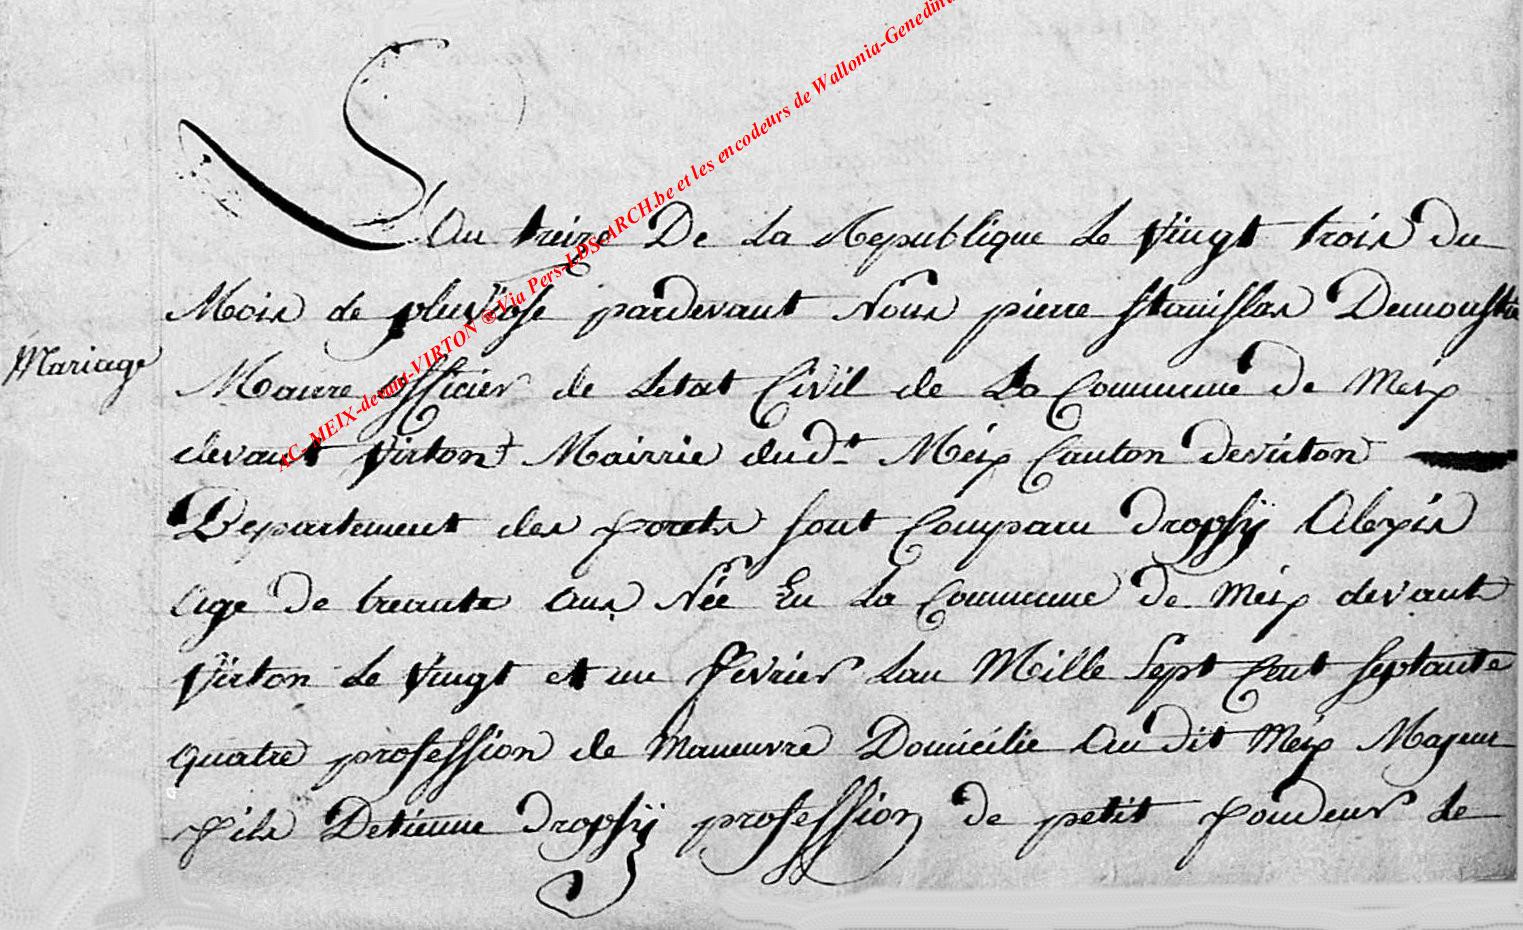 Lan treize De La Republique Le Vingt trois du
Mois de pluViose pardevant Nous pierre stanislas Demoustie
Mariage
Maire officier de Letat Civil de La Commune de Meix
devant Virton Mairie dud.t Meix Canton devirton
Departement des forets sont Comparu Dropsÿ Alexis
age de trente ans Née En La Commune de Meix devant
Virton Le Vingt et un fevrier Lan Mille sept Cent septante
quatre profession de Maneuvre Domicilie Au dit Meix Majeur
fils Detienne Dropsÿ profession de petit fondeur Le
AC- MEIX-devant-VIRTON ® Via Pers-LDS-ARCH.be et les encodeurs de Wallonia-Genedin